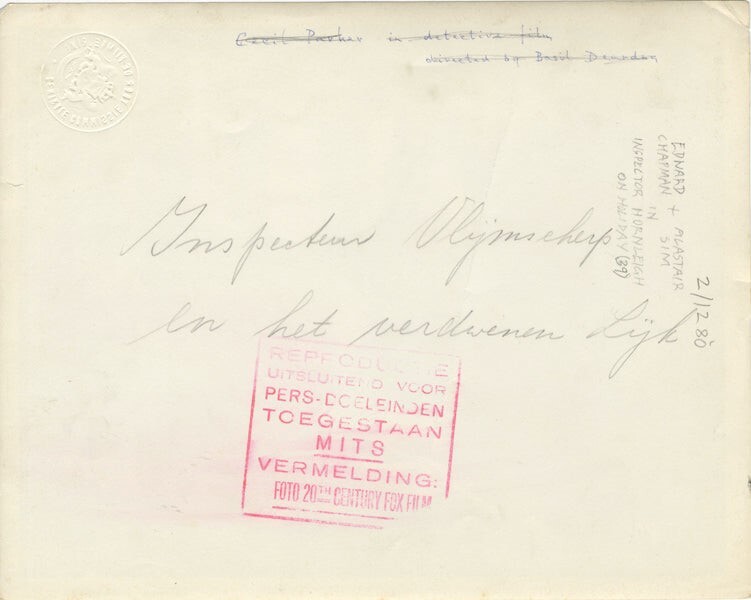 Cecil Parker in detective film
directed by Basil Dearden
EDWARD + ALASTAIR
CHAPMAN IN SIM
INSPECTOR HORNLEIGH
ON HOLIDAY (39)
2/12 80
Inspecteur Vlijmscherp
en het verdwenen Lijk
REPRODUCTIE
UITSLUITEND VOOR
PERS-DOELEINDEN
TOEGESTAAN
MITS
VERMELDING:
FOTO 20TH CENTURY FOX FILM